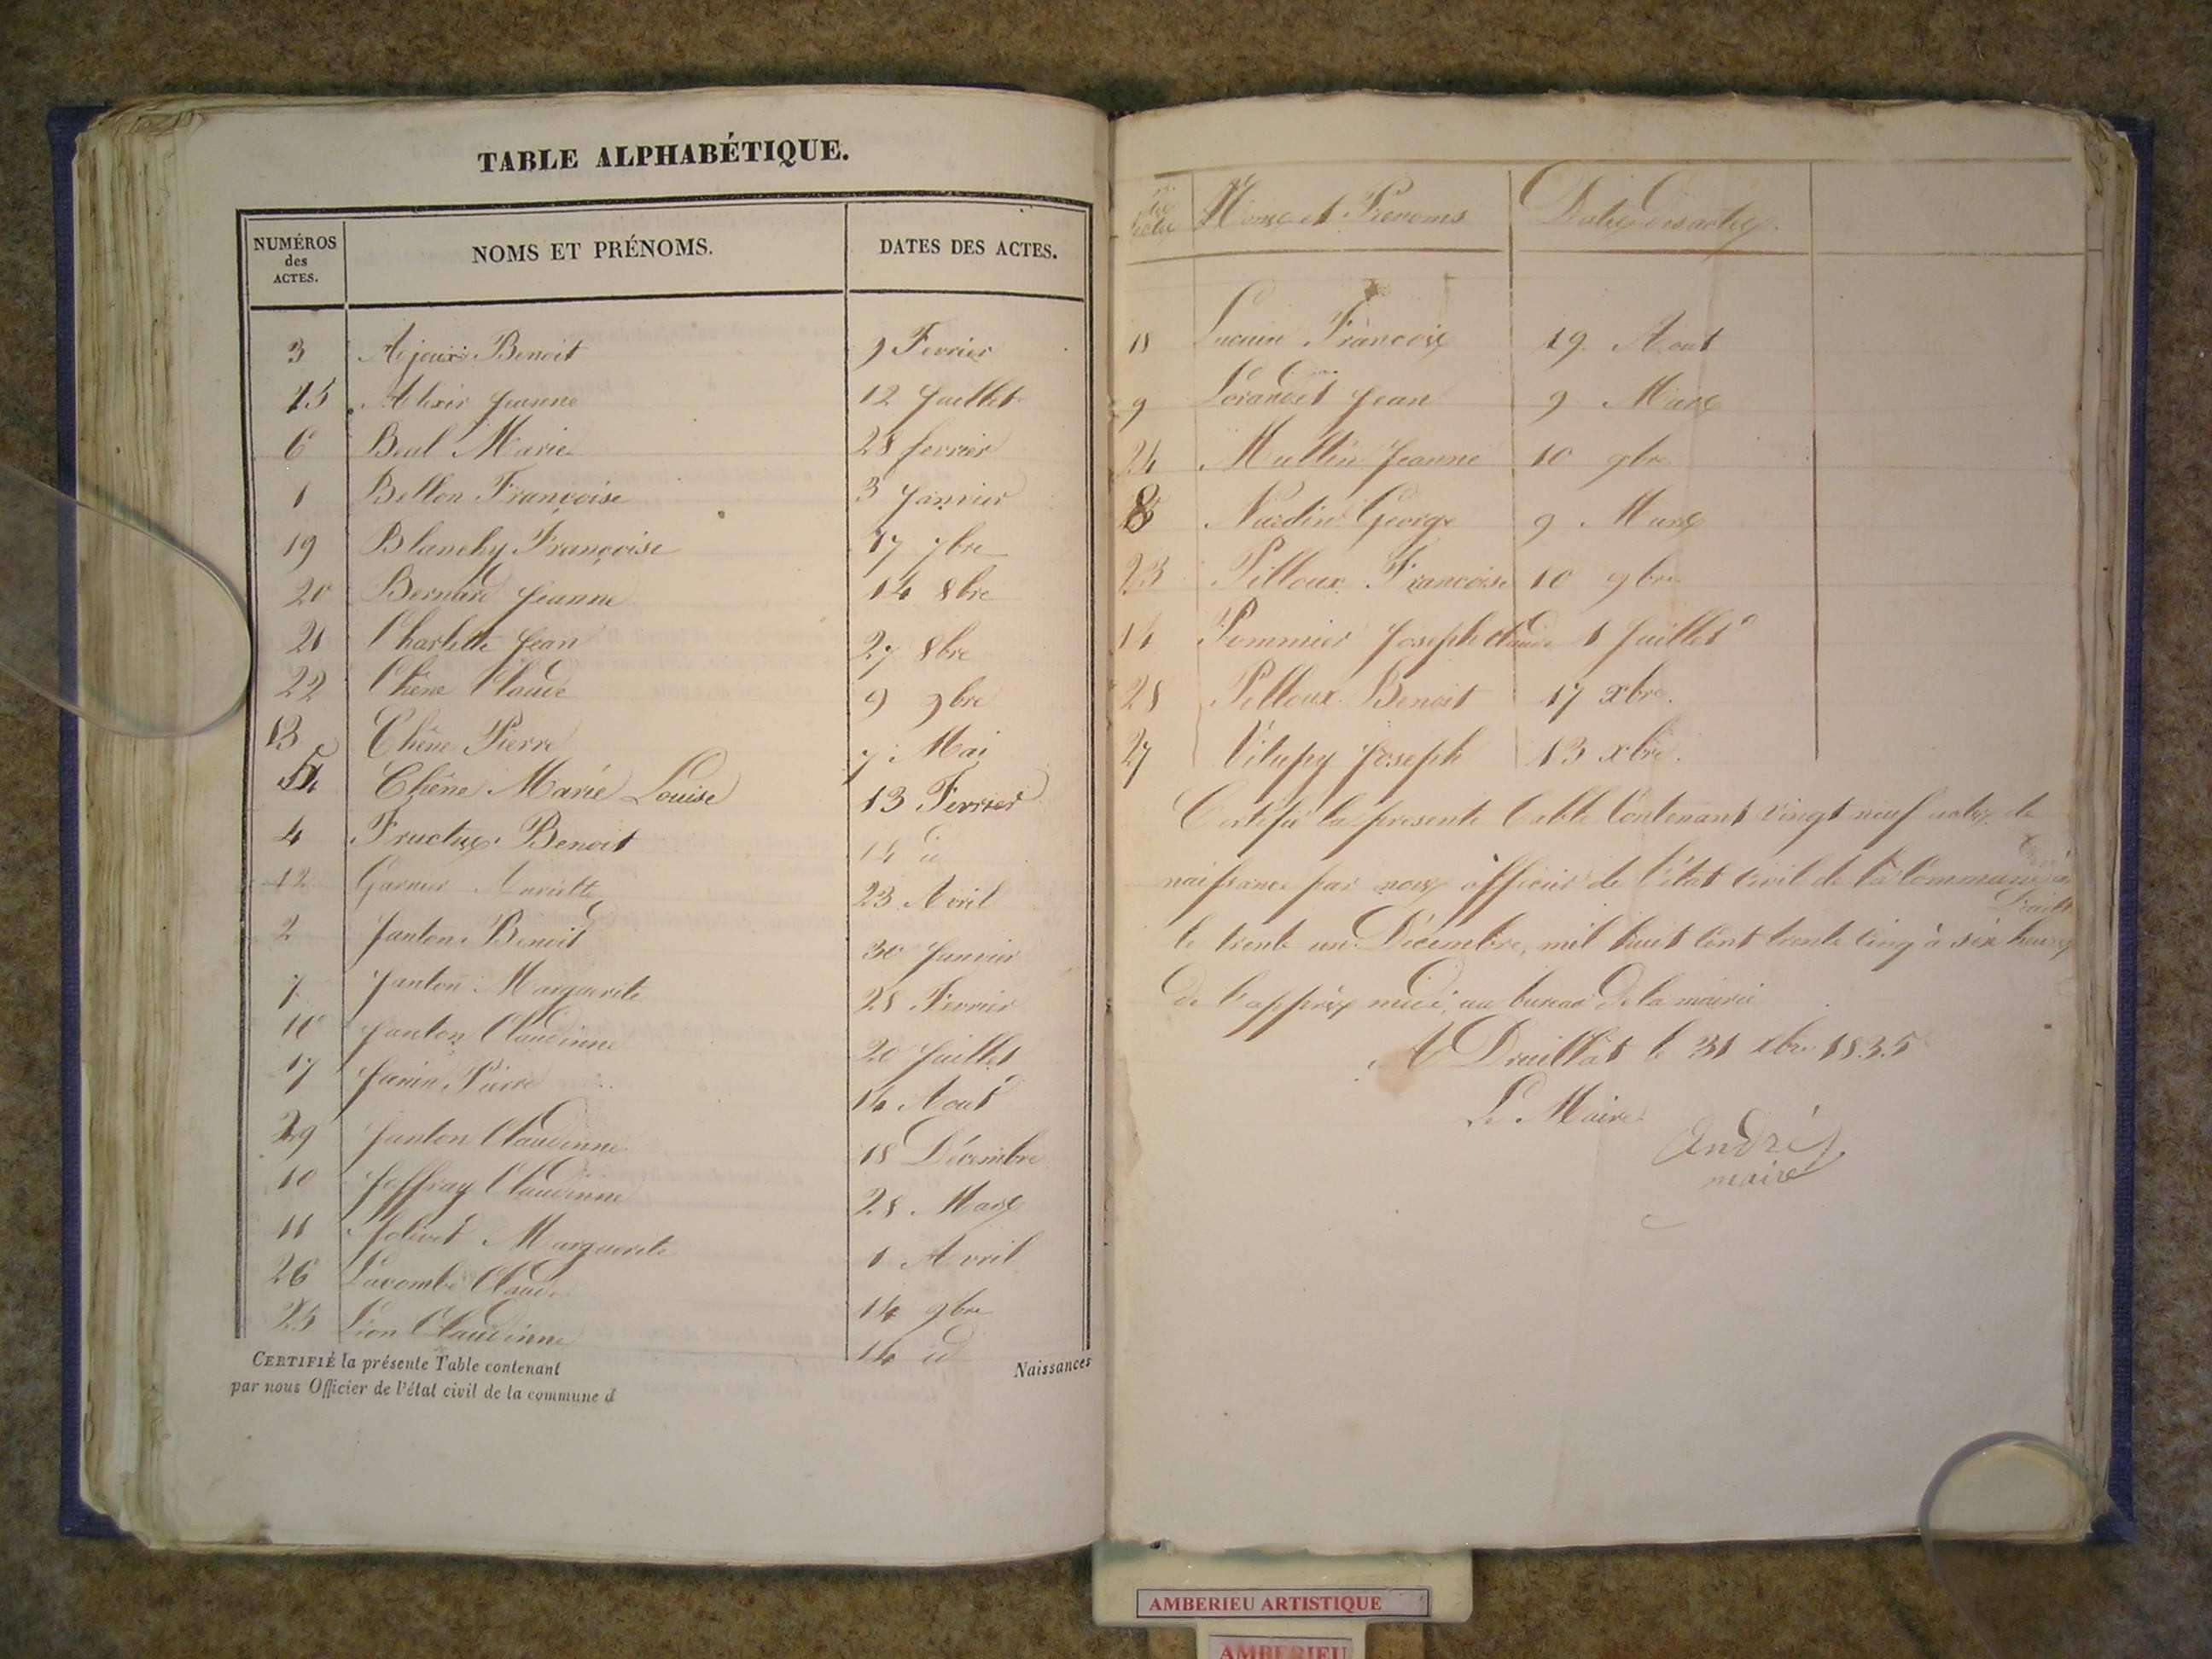 TABLE ALPHABÉTIQUE.
NUMÉROS des ACTES. NOMS ET PRÉNOMS. DATES DES ACTES.
3 Benoit 9 Fevrier
15 Alexis Jeanne 12 Juillet
6 Beal Marie 28 fevrier
1 Bellon Françoise 3 Janvier
19 Blanchy Françoise 17 7bre
20 Bernard Jeanne 14 8bre
21 Charlette Jean 27 8bre
22 Chêne Claude 9 9bre
13 Chêne Pierre 7 Mai
5 Chêne Marie Louise 13 Fevrier
4 Fructus Benoit id
12 Garnier 23 Avril
2 Janton Benoit 30 Janvier
7 Janton Marguerite 28 Fevrier
16 Janton Claudinne 20 Juillet
17 Janin Pierre 14 Aout
29 Janton Claudinne 18 Décembre
10 Joffray Claudinne 28 Mars
11 Jolivet Marguerite 1 Avril
26 Lacombe Claude 14 9bre
25 Lion Claudinne 14 id
CERTIFIÉ la présente Table contenant Naissances
par nous Officier de l'état civil de la commune d
Noms et Prenoms Dates des actes.
18 François 19 Aout
9 Jean 9 Mars
24 Jeanne 10 9bre
8 Nardin George 9 Mars
23 Pilloux Francoise 10 9bre
14 Pommier Joseph Claude 1 Juillet
28 Pilloux Benoit 17 xbre.
27 Joseph 13 xbre.
Certifié la presente table Contenant vingt neuf actes de
naissance par nous officier de l'état Civil de la Commune de
Druillat
le trente un Décembre, mil huit Cent trente Cinq à six heures
de l'apprès midi, au bureau de la mairie
A Druillat le 31 xbre 1835
Le Maire
André
maire
AMBERIEU ARTISTIQUE
AMBERIEU